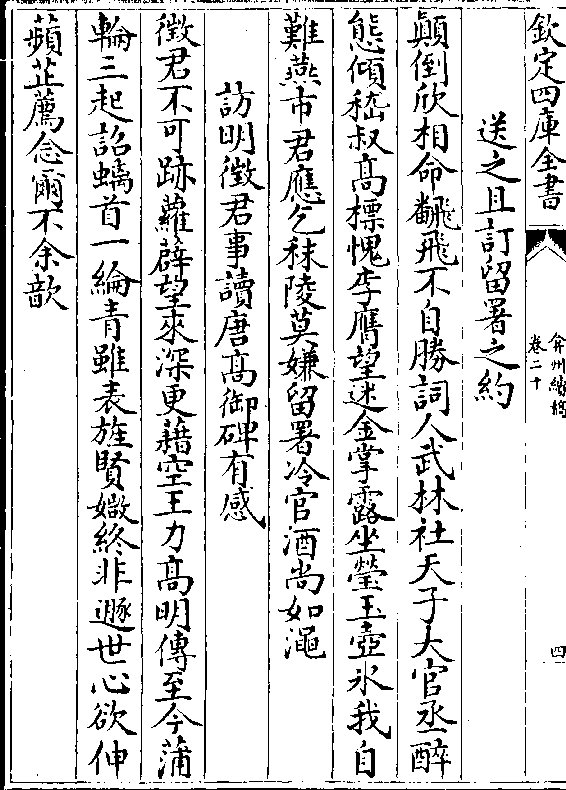 欽定四庫全書
弇州續稿
卷二十
四
送之且訂留署之約
顛倒欣相命翩飛不自勝詞人武林社天子大官丞醉
態傾嵇叔高標愧李膺望迷金掌露坐瑩玉壺氷我自
難燕市君應乞秣陵莫嫌留署冷官酒尚如澠
訪明徵君事讀唐高御碑有感
徵君不可跡蘿薜望來深更藉空王力髙明傳至今蒲
輪三起詔螭首一綸青雖表旌賢媺終非遯世心欲伸
蘋芷薦念爾不余歆